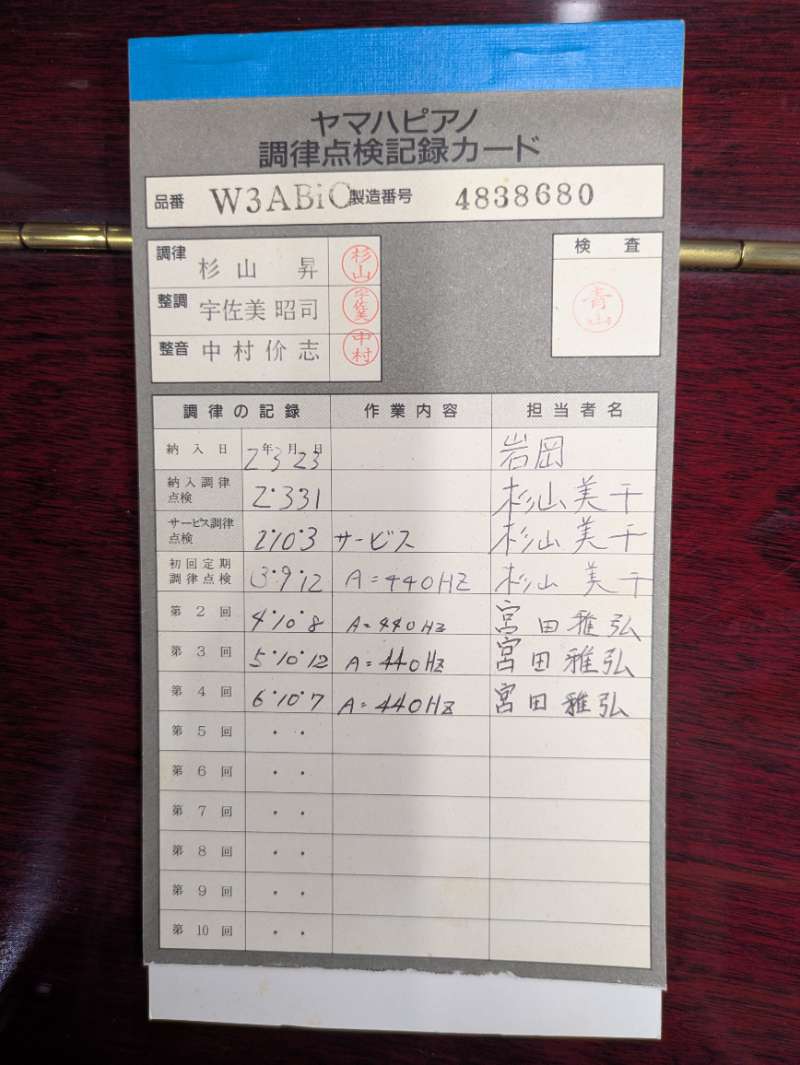 ヤマハピアノ
調律点検記録カード
品番 W3ABiC 製造番号 4838680
調律 杉山 昇 杉山
検査
整調 宇佐美 昭司
整音 中村 价志 中村
調律の記録 作業内容 担当者名
納入日 2年3月23日 岩岡
納入調律点検 2・3・31 杉山美千
サービス調律点検 2・10・3 サービス 杉山美千
初回定期調律点検 3・9・12 A=440HZ 杉山美千
第2回 4・10・8 A=440HZ 宮田雅弘
第3回 5・10・12 A=440Hz 宮田雅弘
第4回 6・10・7 A=440HZ 宮田雅弘
第5回 ・・
第6回 ・・
第7回 ・・
第8回 ・・
第9回 ・・
第10回 ・・